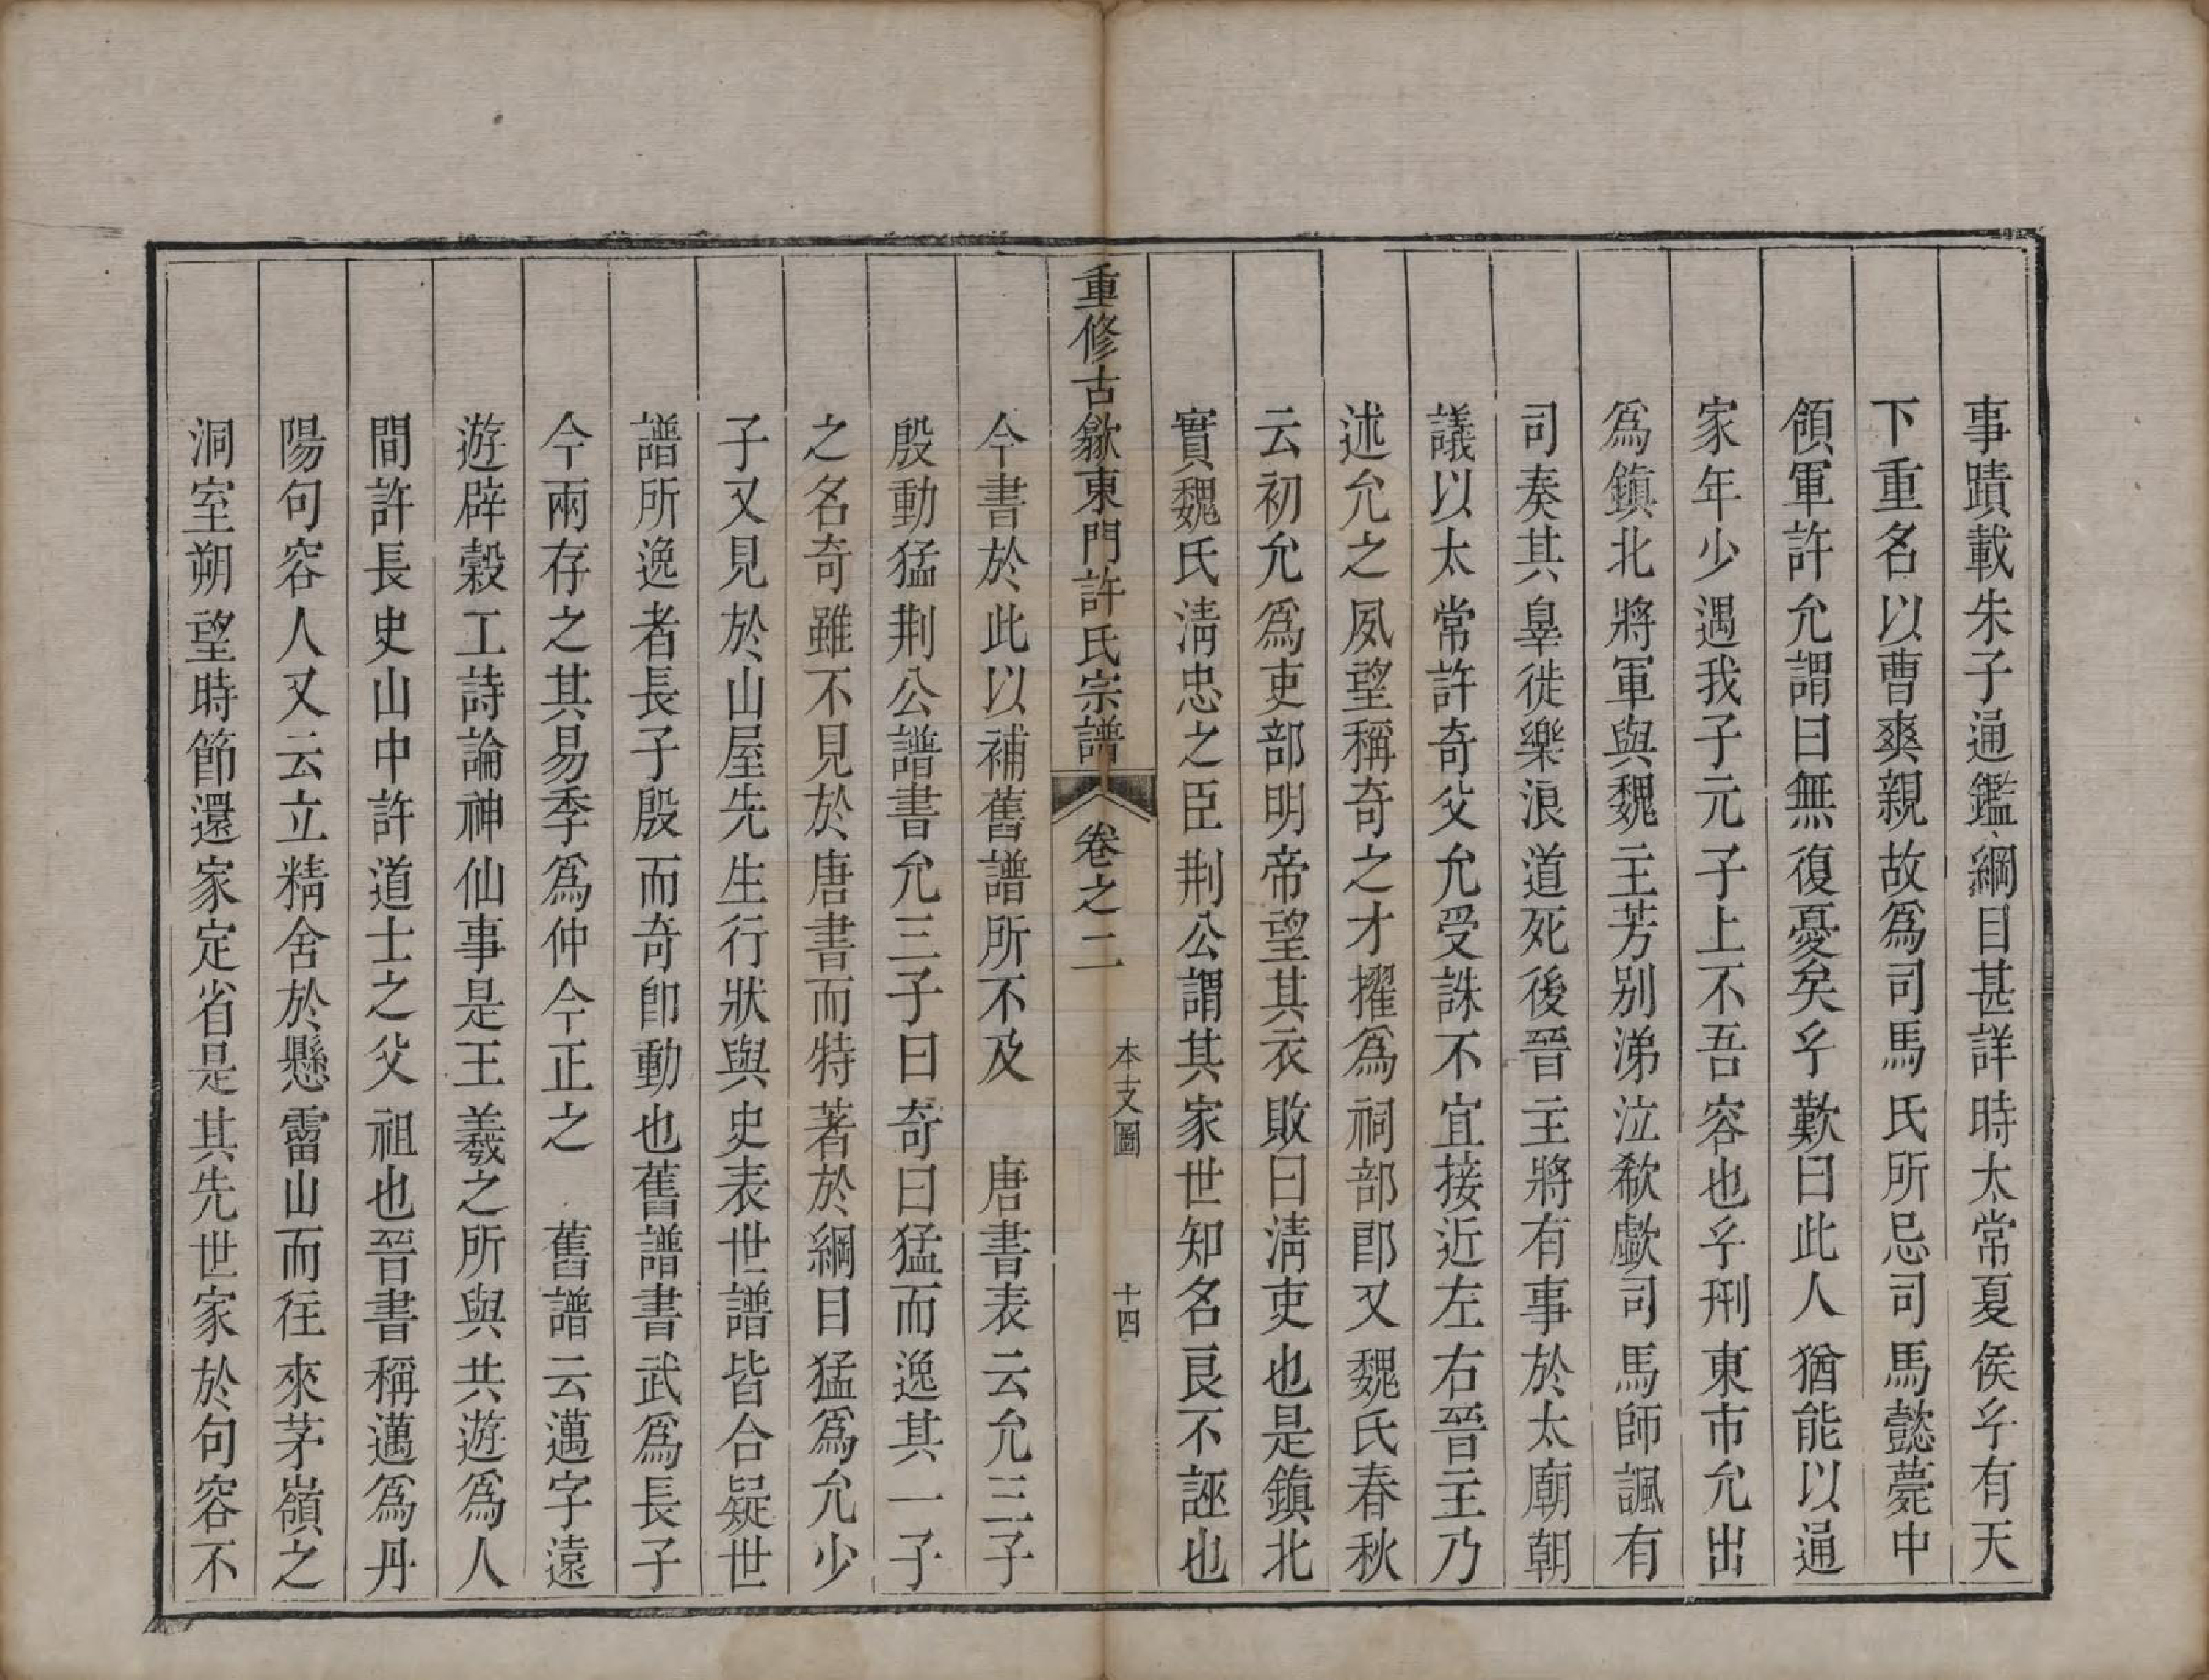 事蹟載朱子通鑑綱目甚詳時太常夏侯乎有天
下重名以曹爽親故爲司馬氏所忌司馬懿薨中
領軍許允謂曰無復憂矣乎歎曰此人猶能以通
家年少遇我子元子上不吾容也乎刑東市允出
爲鎮北將軍與魏主芳别涕泣欷歔司馬師諷有
司奏其辠徙樂浪道死後晉主將有事於太廟朝
議以太常許奇父允受誅不宜接近左右晉主乃
述允之夙望稱奇之才擢爲祠部郎又魏氏春秋
云初允爲吏部明帝望其衣敗曰淸吏也是鎮北
實魏氏淸忠之臣荆公謂其家世知名良不誣也
重修古歙東門許氏宗譜 卷之二 本支圖 十四
今書於此以補舊譜所不及 唐書表云允三子
殷動猛荆公譜書允三子曰奇曰猛而逸其一子
之名奇雖不見於唐書而特著於綱目猛爲允少
子又見於山屋先生行狀與史表世譜皆合疑世
譜所逸者長子殷而奇卽動也舊譜書武爲長子
今兩存之其易季爲仲今正之 舊譜云邁字遠
遊辟穀工詩論神仙事是王羲之所與共遊爲人
間許長史山中許道士之父祖也晉書稱邁爲丹
陽句容人又云立精舍於懸霤山而往來茅嶺之
洞室朔望時節還家定省是其先世家於句容不